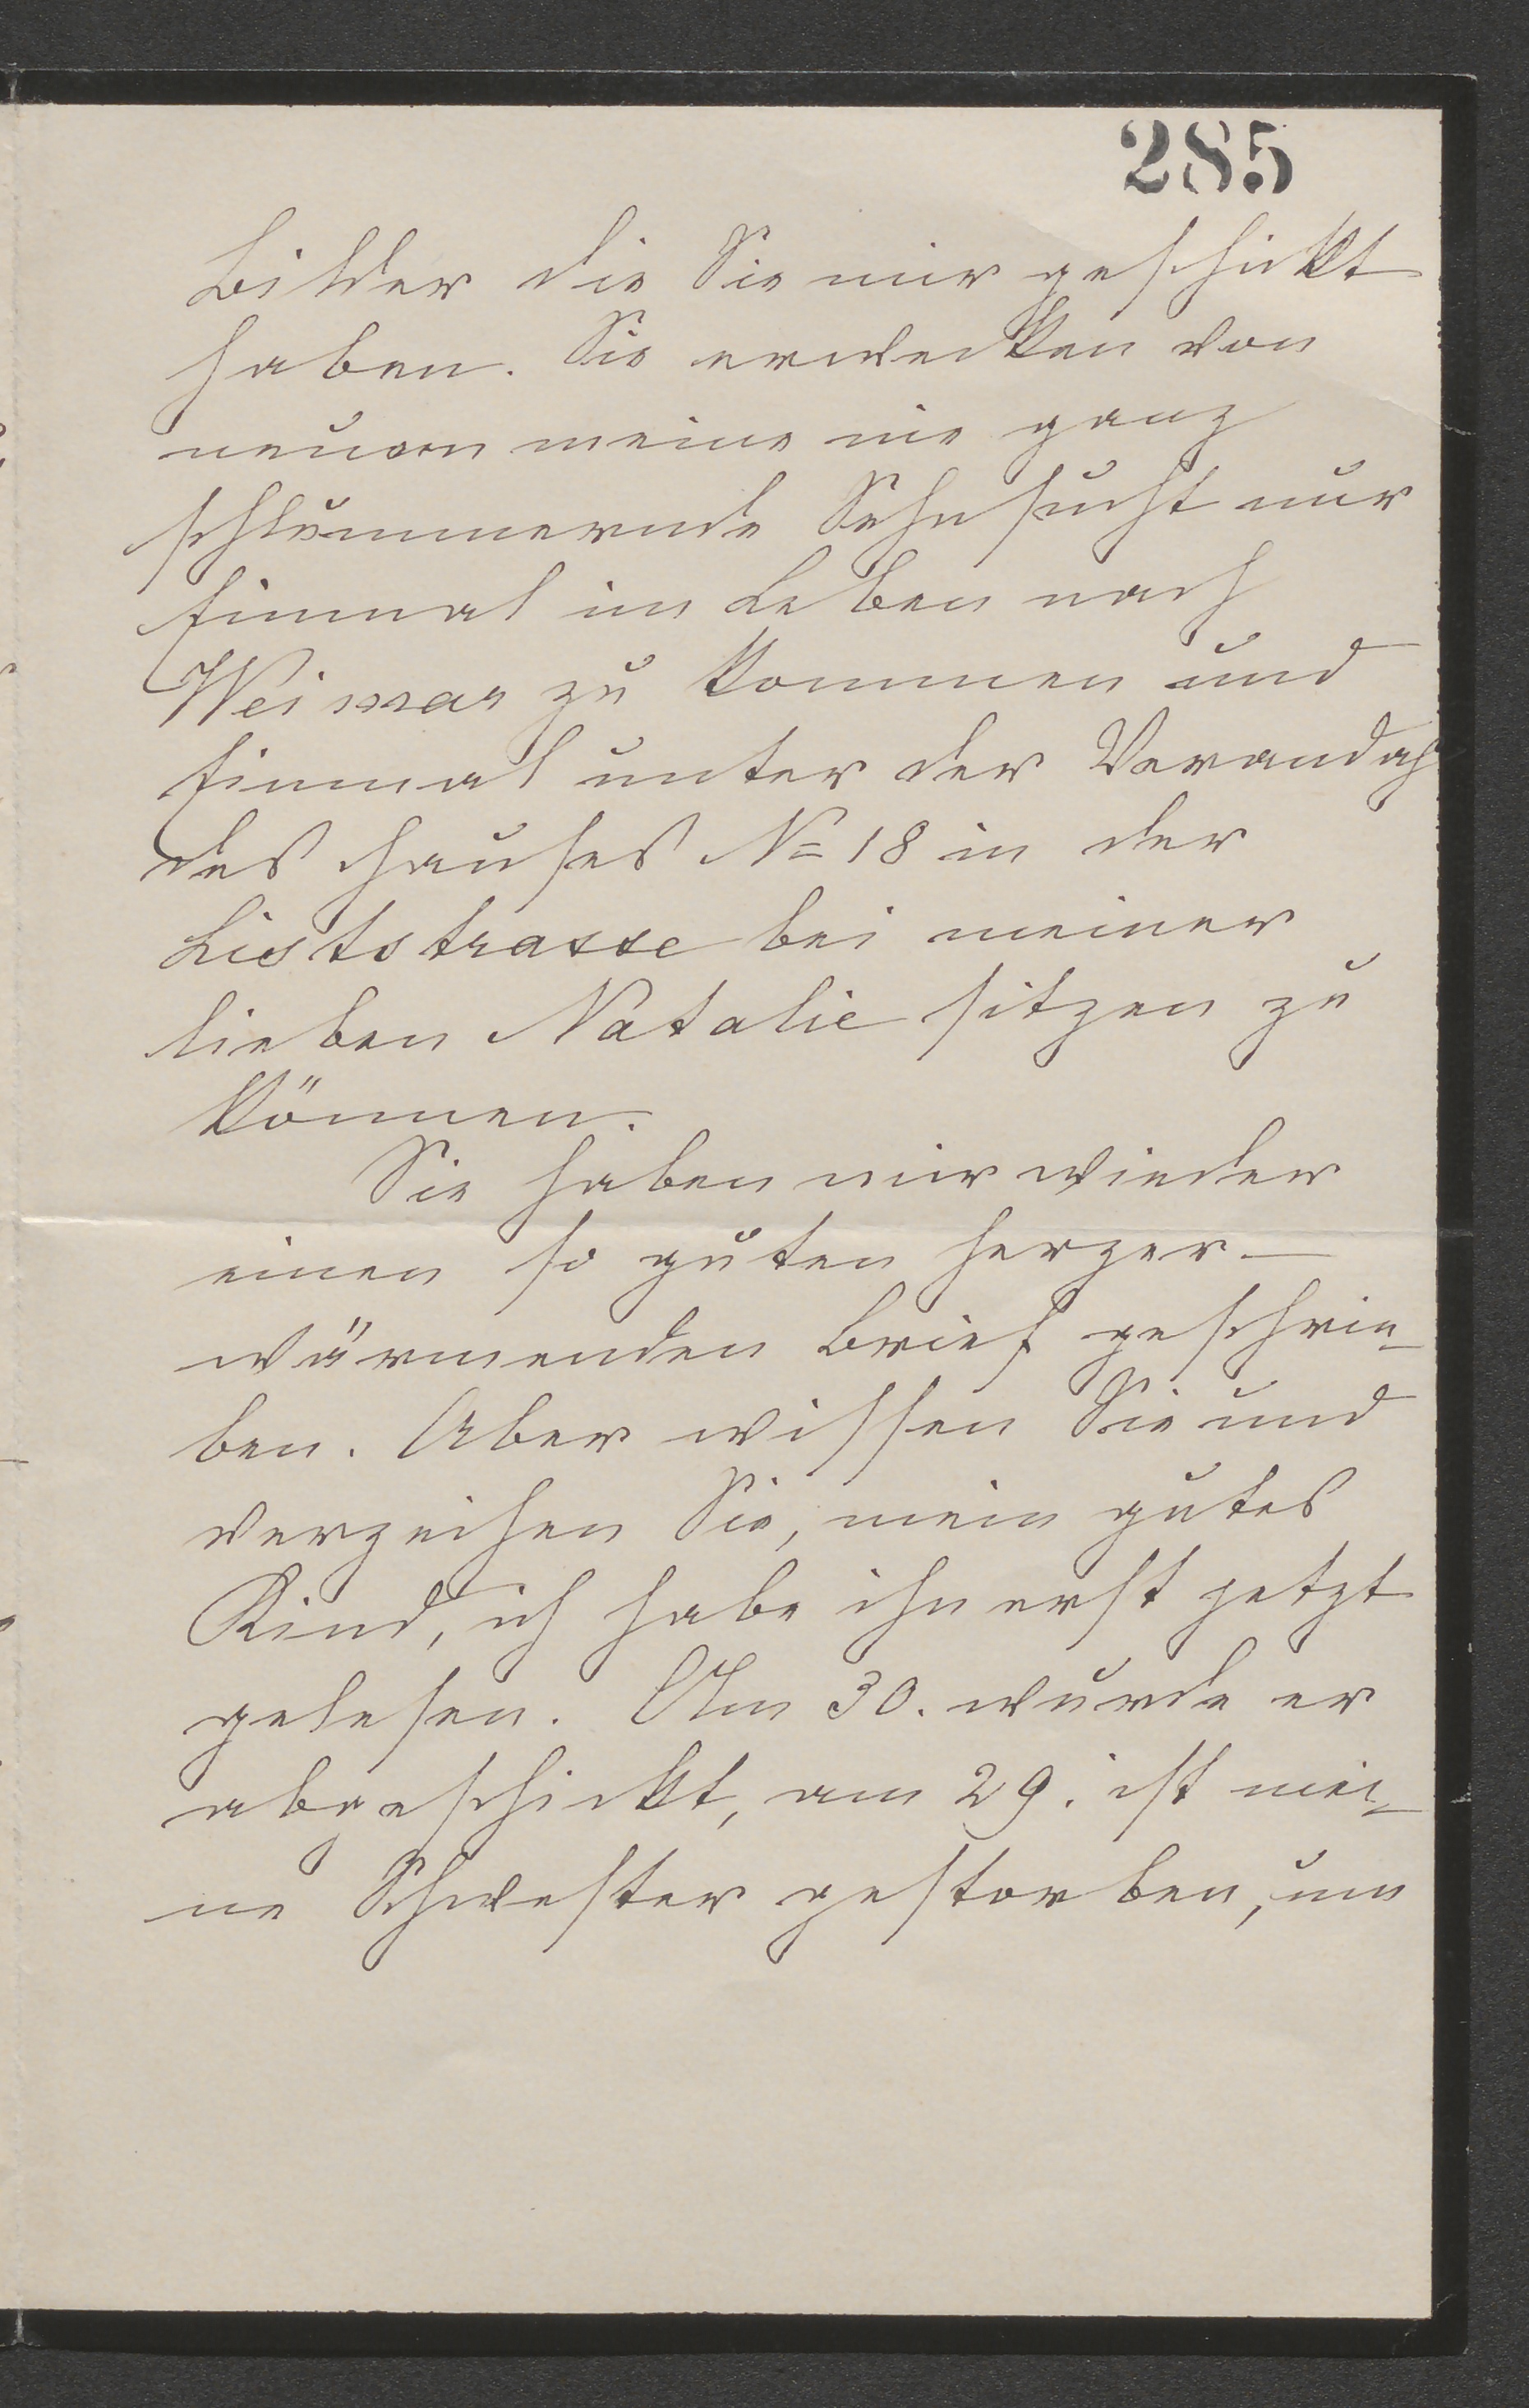 285
Bilder die Sie mir geschickt
haben. Sie erwecken von
neuem meine nie ganz
schlummernde Sehnsucht nur
Einmal im Leben nach
Weimar zu kommen und
Einmal unter der Verandah
des Hauses No 18 in der
Liststrasse bei meiner
lieben Natalie sitzen zu
können.
Sie haben mir wieder
einen so guten herzer-
wärmenden Brief geschrie-
ben. Aber wissen Sie und
verzeihen Sie, mein gutes
Kind, ich habe ihn erst jetzt
gelesen. Am 30. wurde er
abgeschickt, am 29. ist mei-
ne Schwester gestorben, um